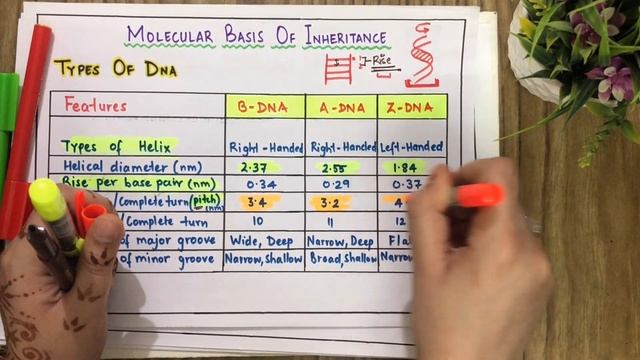 MOLECULAR BASIS OF INHERITANCE
TYPES OF DNA
Rise
Features B-DNA A-DNA Z-DNA
Types of Helix Right-Handed Right-Handed Left-Handed
Helical diameter (nm) 2.37 2.55 1.84
Rise per base pair (nm) 0.34 0.29 0.37
/Complete turn (pitch) (nm) 3.4 3.2
/Complete turn 10 11 12
of major groove Wide, Deep Narrow, Deep
of minor groove Narrow, Shallow Broad, Shallow Narrow